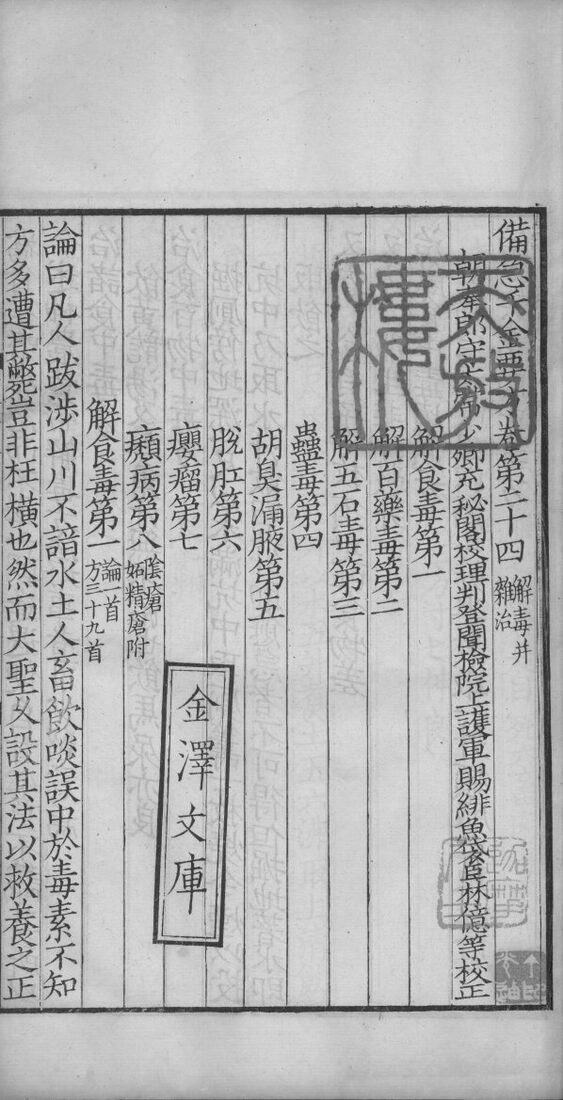 備急千金要方卷第二十四 解毒并
雜治
朝奉郎守太常少卿充秘閣校理判登聞檢院上護軍賜緋魚袋臣林億等校正
解食毒第一
解百藥毒第二
解五石毒第三
蠱毒第四
胡臭漏腋第五
脫肛第六
癭瘤第七
㿗病第八 陰瘡
妬精瘡附
解食毒第一 論一首
方三十九首
論曰凡人跋涉山川不諳水土人畜飲啖誤中於毒素不知
方多遭其斃豈非枉橫也然而大聖久設其法以救養之正
金澤文庫